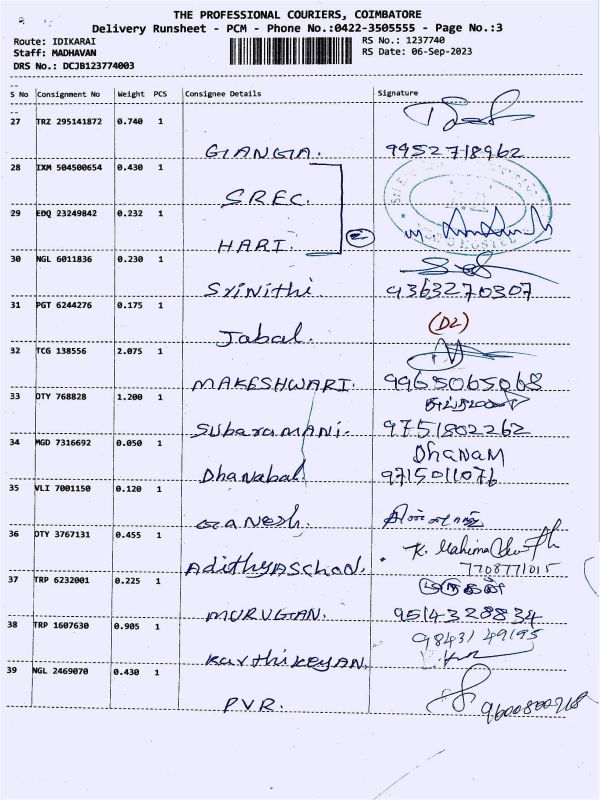 THE PROFESSIONAL COURIERS, COIMBATORE
Delivery Runsheet - PCM - Phone No.:0422-3505555 - Page No.:3
Route: IDIKARAI RS No.: 1237740
Staff: MADHAVAN RS Date: 06-Sep-2023
DRS No.: DCJB123774003
S No Consignment No Weight PCS Consignee Details Signature
27 TRZ 295141872 0.740 1
GIANGIA. 9952718962
28 IXM 504500654 0.430 1
S.REC.
29 EDQ 23249842 0.232 1
HARI. 2
30 NGL 6011836 0.230 1
Srinithi 9363270307
31 PGT 6244276 0.175 1
Jabal. (D2)
32 TCG 138556 2.075 1
MAKESHWARI. 9965065068
33 OTY 768828 1.200 1
SUbaraMANi. 9751802262
34 MGD 7316692 0.050 1 DhanaM
Dhanabal 9715011076
35 VLI 7001150 0.120 1
GaNesh.
36 OTY 3767131 0.455 1
AdithyASchool. 7708771015
37 TRP 6232001 0.225 1
MURUGIAN. 9514328834
38 TRP 1607630 0.905 1 98431 49195
KarthiKeyAN.
39 NGL 2469070 0.430 1
PVR. 9600800768